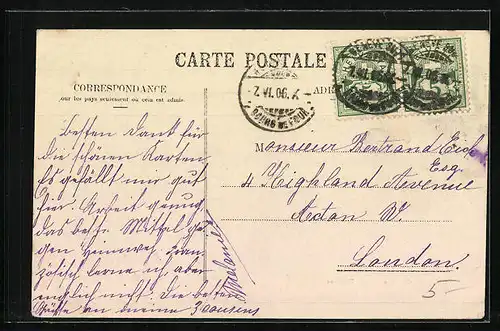 CARTE POSTALE
CORRESPONDANCE
pour les pays seulement ou cela est admis.
ADR
-7.VI.06.
besten Dank für
die schönen Karten.
Es gefällt mir gut
hier. Arbeit genug
das beste Mittel ge-
gen Heimweh, Fran-
zösisch lerne ich, aber
englisch nicht. Die besten
Grüsse an deine 3 cousens
Melanie
Monsieur Bertrand
Esq.
4 Highland Avenue
Acton W.
London.
5-